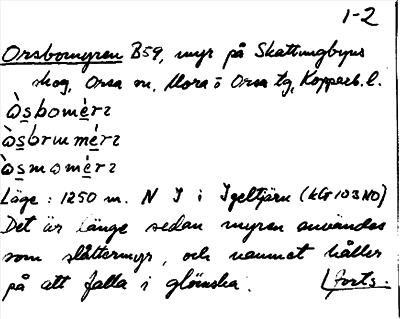 1-2
Orsbomyren B59, myr på Skattungbyns
skog, Orsa sn, Mora o Orsa tg, Kopparb. l.
Läge: 1250 m. N I i Igeltjärn (kG 103 NO)
Det är länge sedan myren användes
som slåttermyr, och namnet håller
på att falla i glömska. Forts.